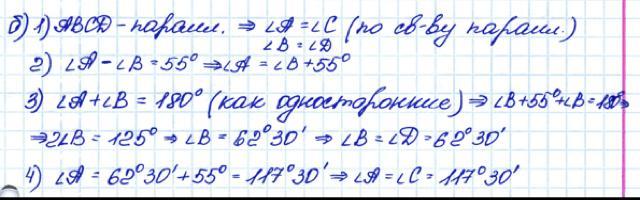 б) 1) ABCD - паралл. ⇒ ∠A = ∠C (по св-ву паралл.)
∠B = ∠D
2) ∠A - ∠B = 55° ⇒ ∠A = ∠B + 55°
3) ∠A + ∠B = 180° (как односторонние) ⇒ ∠B + 55° + ∠B = 180° ⇒
⇒ 2∠B = 125° ⇒ ∠B = 62°30' ⇒ ∠B = ∠D = 62°30'
4) ∠A = 62°30' + 55° = 117°30' ⇒ ∠A = ∠C = 117°30'